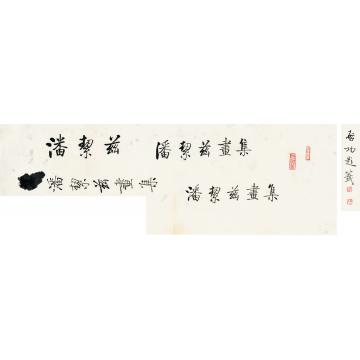 潘絜兹
潘絜兹画集
潘絜兹畫集
潘絜兹畫集
启功题签